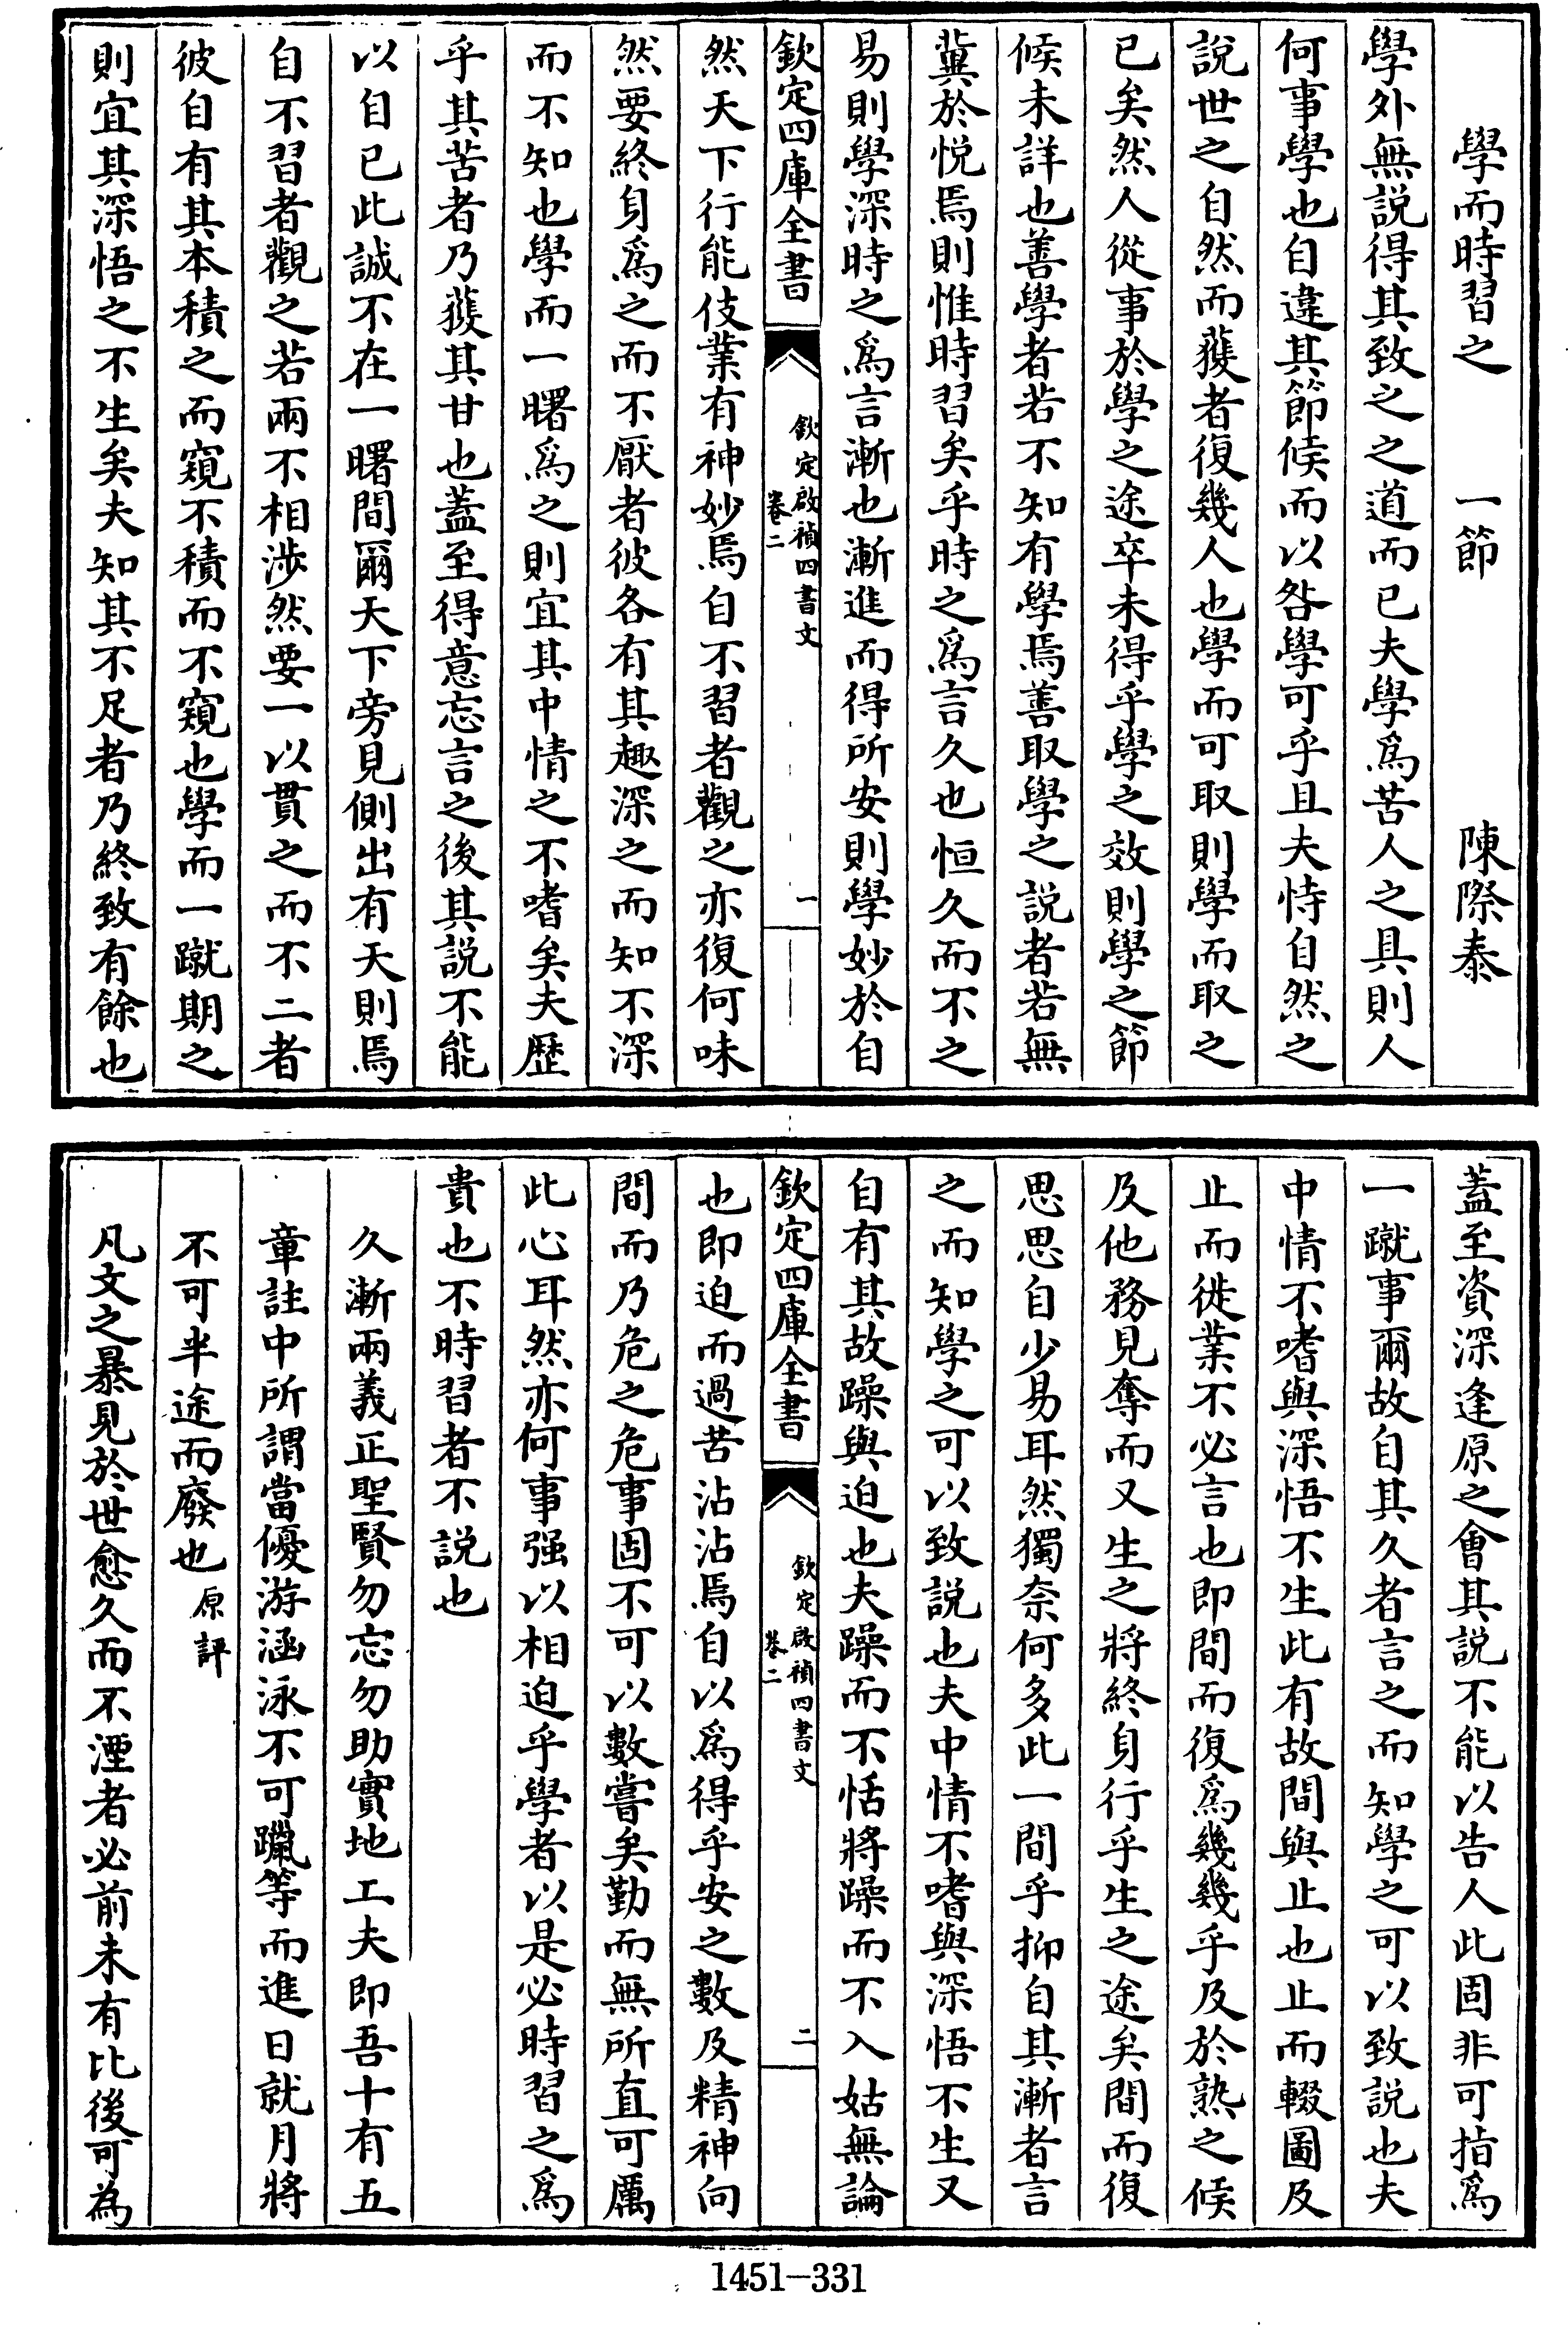 學而時習之　一節　陳際泰
學外無説得其致之之道而已夫學爲苦人之具則人
何事學也自違其節候而以咎學可乎且夫恃自然之
說世之自然而獲者復幾人也學而可取則學而取之
已矣然人從事於學之途卒未得乎學之效則學之節
候未詳也善學者若不知有學焉善取學之説者若無
冀於悦焉則惟時習矣乎時之爲言久也恒久而不之
易則學深時之爲言漸也漸進而得所安則學妙於自
欽定四庫全書
欽定啟禎四書文
卷二
一
然天下行能伎業有神妙焉自不習者觀之亦復何味
然要終身爲之而不厭者彼各有其趣深之而知不深
而不知也學而一曙爲之則宜其中情之不嗜矣夫歷
乎其苦者乃獲其甘也蓋至得意忘言之後其説不能
以自已此誠不在一曙間爾天下旁見側出有天則焉
自不習者觀之若兩不相涉然要一以貫之而不二者
彼自有其本積之而窺不積而不窺也學而一蹴期之
則宜其深悟之不生矣夫知其不足者乃終致有餘也
蓋至資深逢原之會其説不能以告人此固非可指爲
一蹴事爾故自其久者言之而知學之可以致説也夫
中情不嗜與深悟不生此有故間與止也止而輟圖及
止而徙業不必言也即間而復爲幾幾乎及於熟之候
及他務見奪而又生之將終身行乎生之途矣間而復
思思自少易耳然獨奈何多此一間乎抑自其漸者言
之而知學之可以致説也夫中情不嗜與深悟不生又
自有其故躁與迫也夫躁而不恬將躁而不入姑無論
欽定四庫全書
欽定啟禎四書文
卷二
二
也即迫而過苦沾沾焉自以爲得乎安之數及精神向
間而乃危之危事固不可以數嘗矣勤而無所直可厲
此心耳然亦何事强以相迫乎學者以是必時習之爲
貴也不時習者不説也
久漸兩義正聖賢勿忘勿助實地工夫即吾十有五
章註中所謂當優游涵泳不可躐等而進日就月將
不可半途而廢也原評
凡文之暴見於世愈久而不湮者必前未有比後可為
1451—331